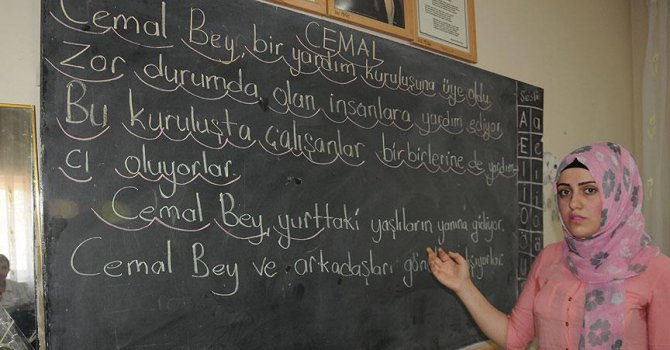 CEMAL
Cemal Bey, bir yardım kuruluşuna üye oldu.
Zor durumda olan insanlara yardım ediyor.
Bu kuruluşta çalışanlar birbirlerine de yardım-
cı oluyorlar.
Cemal Bey, yurttaki yaşlıların yanına gidiyor.
Cemal Bey ve arkadaşları
A a
E e
I ı
İ i
O